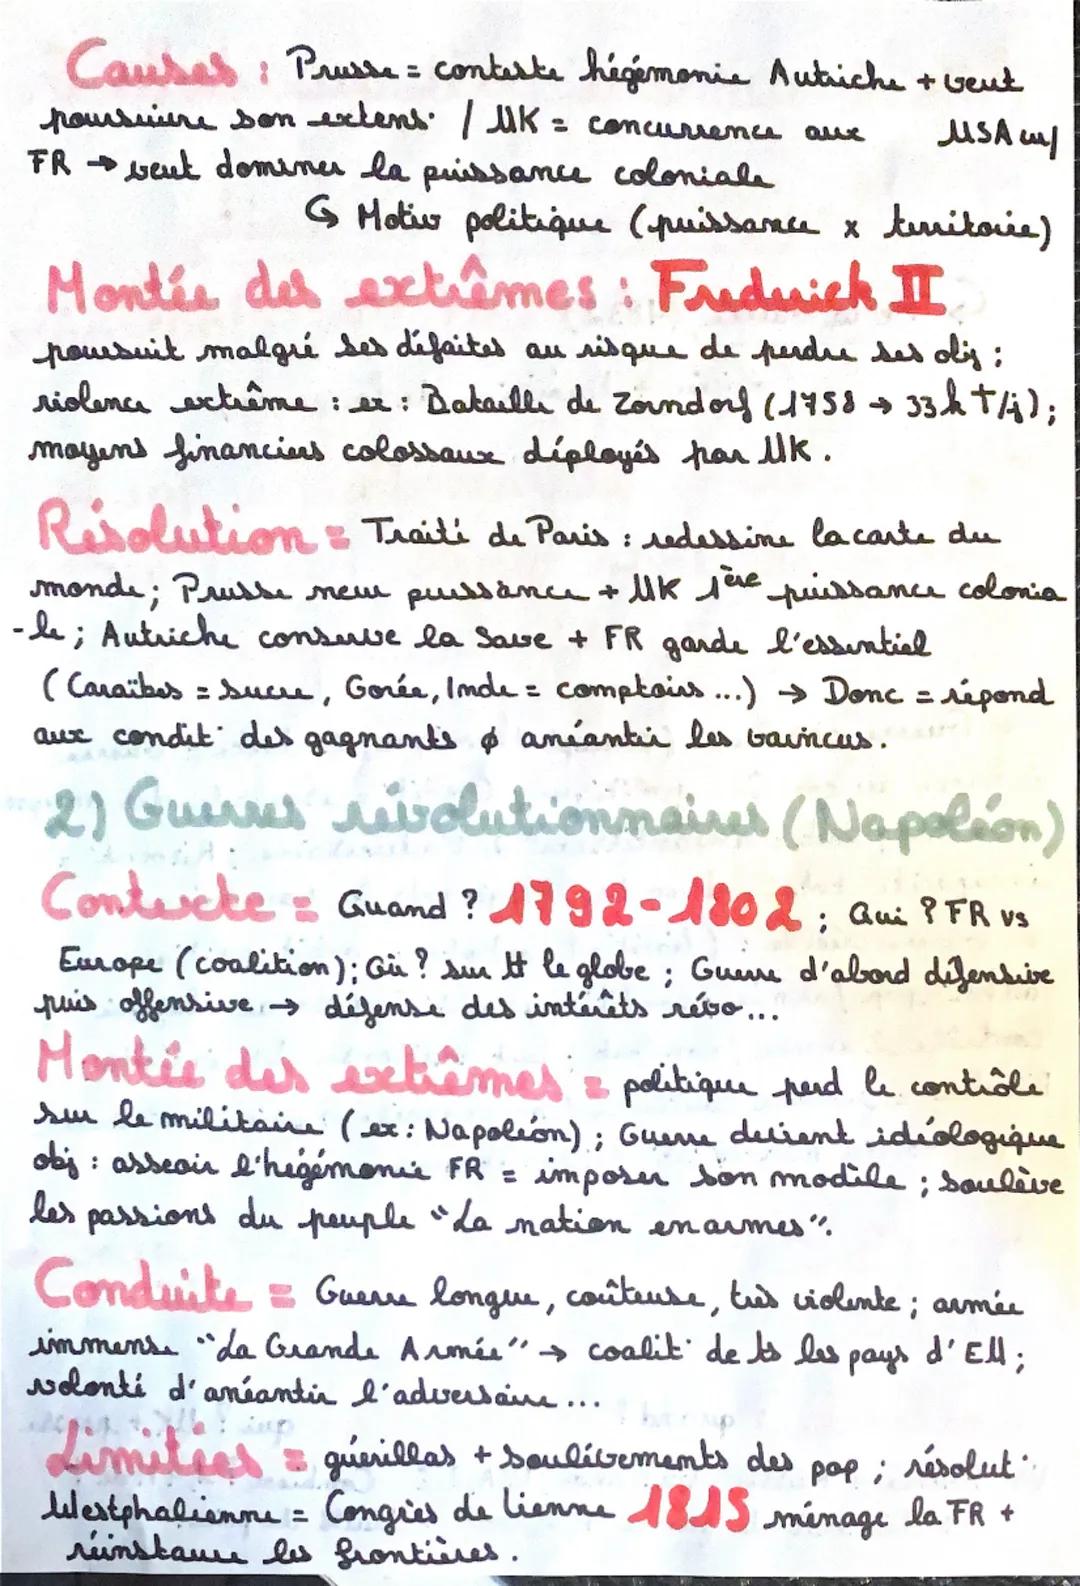 Causes : Prusse = conteste hégémonie Autriche + veut
poursuivre son extens° / UK = concurrence aux USA w/
FR → veut dominer la puissance coloniale
↳ Motiv politique (puissance x territoire)
Montée des extrêmes : Frederich II
poursuit malgré ses défaites au risque de perdre ses obj ;
violence extrême : ex : Bataille de Zorndorf (1758 → 33k †/j) ;
moyens financiers colossaux déployés par UK.
Résolution = Traité de Paris : redessine la carte du
monde ; Prusse new puissance + UK 1ère puissance colonia
-le ; Autriche conserve la Save + FR garde l'essentiel
(Caraïbes = sucre, Gorée, Inde = comptoirs ...) → Donc = répond
aux condit° des gagnants ø anéantir les vaincus.
2) Guerres révolutionnaires (Napoléon)
Contexte = Quand ? 1792-1802 ; Qui ? FR vs
Europe (coalition) ; Où ? sur tt le globe ; Guerre d'abord défensive
puis offensive → défense des intérêts révo...
Montée des extrêmes = politique perd le contrôle
sur le militaire (ex : Napoléon) ; Guerre devient idéologique
obj : asseoir l'hégémonie FR = imposer son modèle ; soulève
les passions du peuple "La nation en armes".
Conduite = Guerre longue, coûteuse, très violente ; armée
immense "La Grande Armée" → coalit° de ts les pays d'EU ;
volonté d'anéantir l'adversaire ...
Limitées = guérillas + soulèvements des pop ; résolut°
Westphalienne = Congrès de Vienne 1815 ménage la FR +
réinstaure les frontières.